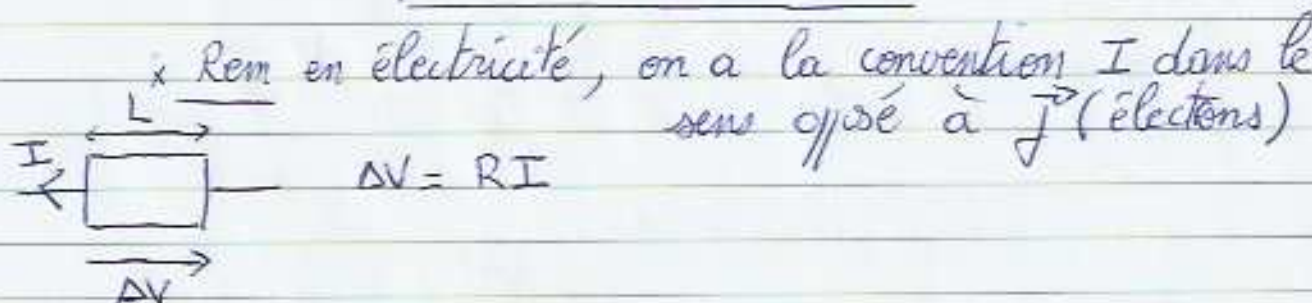 x Rem en électricité, on a la convention I dans le
sens opposé à j⃗ (électons)
L
I
ΔV = RI
ΔV